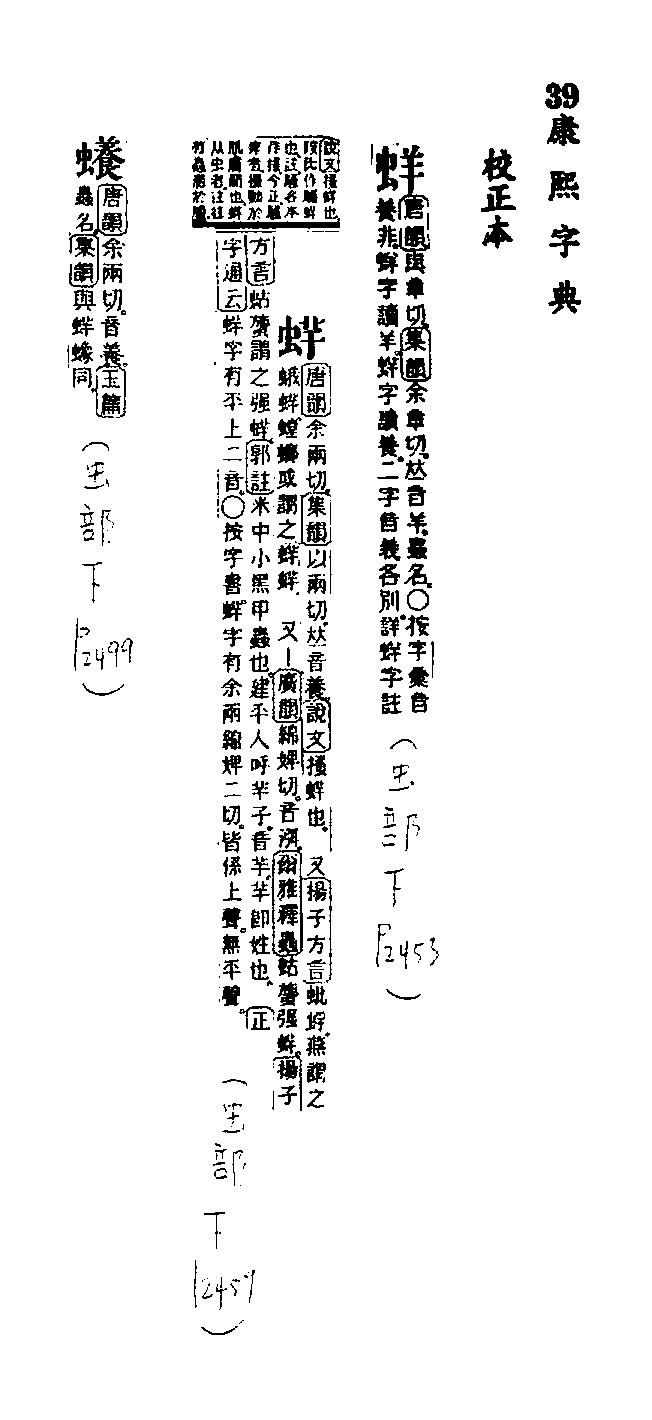 39康熙字典
校正本
蛘唐韻與章切集韻余章切𠀤音羊蟲名○按字彙音
養非蛘字讀羊蛘字讀養二字音義各別詳蛘字註
(虫部下
P2453)
蛘唐韻余兩切集韻以兩切𠀤音養說文搔蛘也 又揚子方言蚍蜉燕謂之
蛾蛘螳螂或謂之蛘蛘 又丨廣韻綿婢切音沵爾雅釋蟲蛄䗯强蛘揚子
方言蛄䗯謂之强蛘郭註米中小黑甲蟲也建平人呼芉子音芉芉卽姓也 正
字通云蛘字有平上二音○按字書蛘字有余兩綿婢二切皆係上聲無平聲
說文搔蛘也
(虫部
下
P2459)
蠎唐韻余兩切音養玉篇
蟲名集韻與蛘蟓同
(虫部
下
P2499)